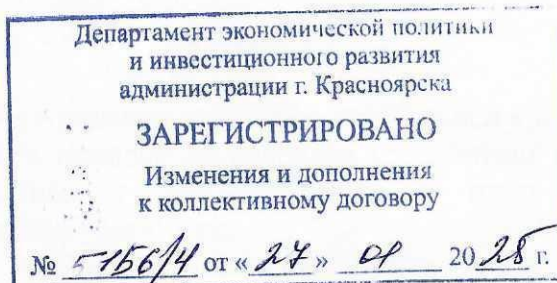 Департамент экономической политики
и инвестиционного развития
администрации г. Красноярска
ЗАРЕГИСТРИРОВАНО
Изменения и дополнения
к коллективному договору
№ 5156/4 от «27» 01 2025 г.